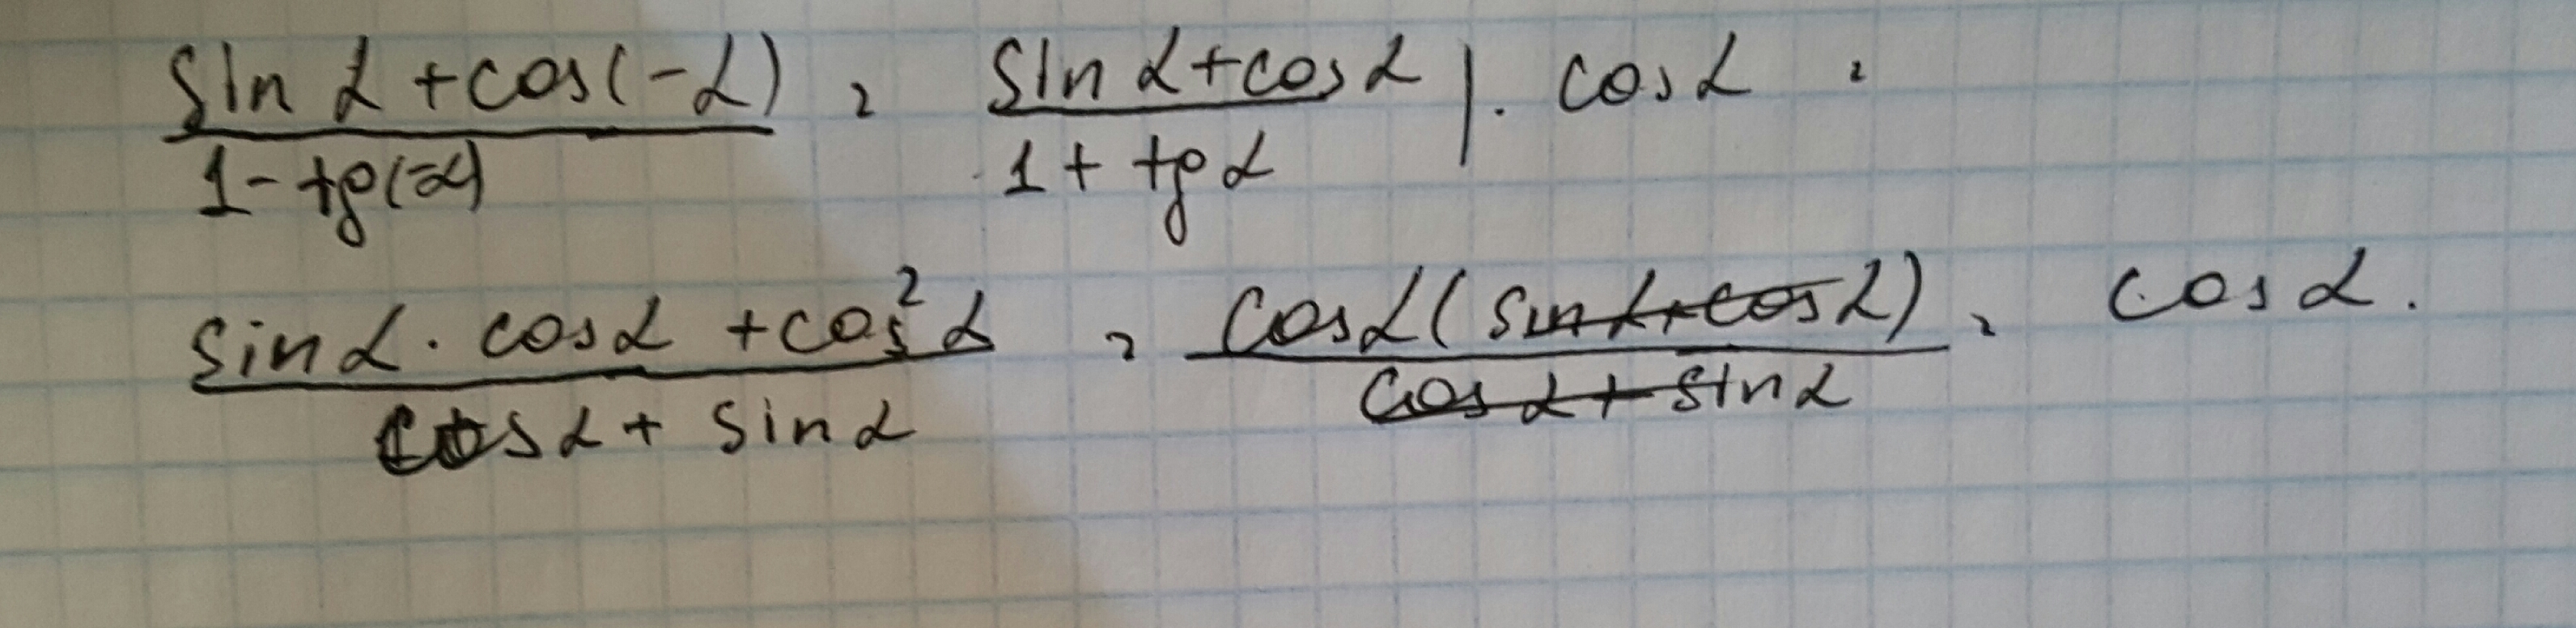 (sin α + cos(-α))/(1 - tg(-α)) = (sin α + cos α)/(1 + tg α) | · cos α =
(sin α · cos α + cos² α)/(cos α + sin α) = (cos α (sin α + cos α))/(cos α + sin α) = cos α.